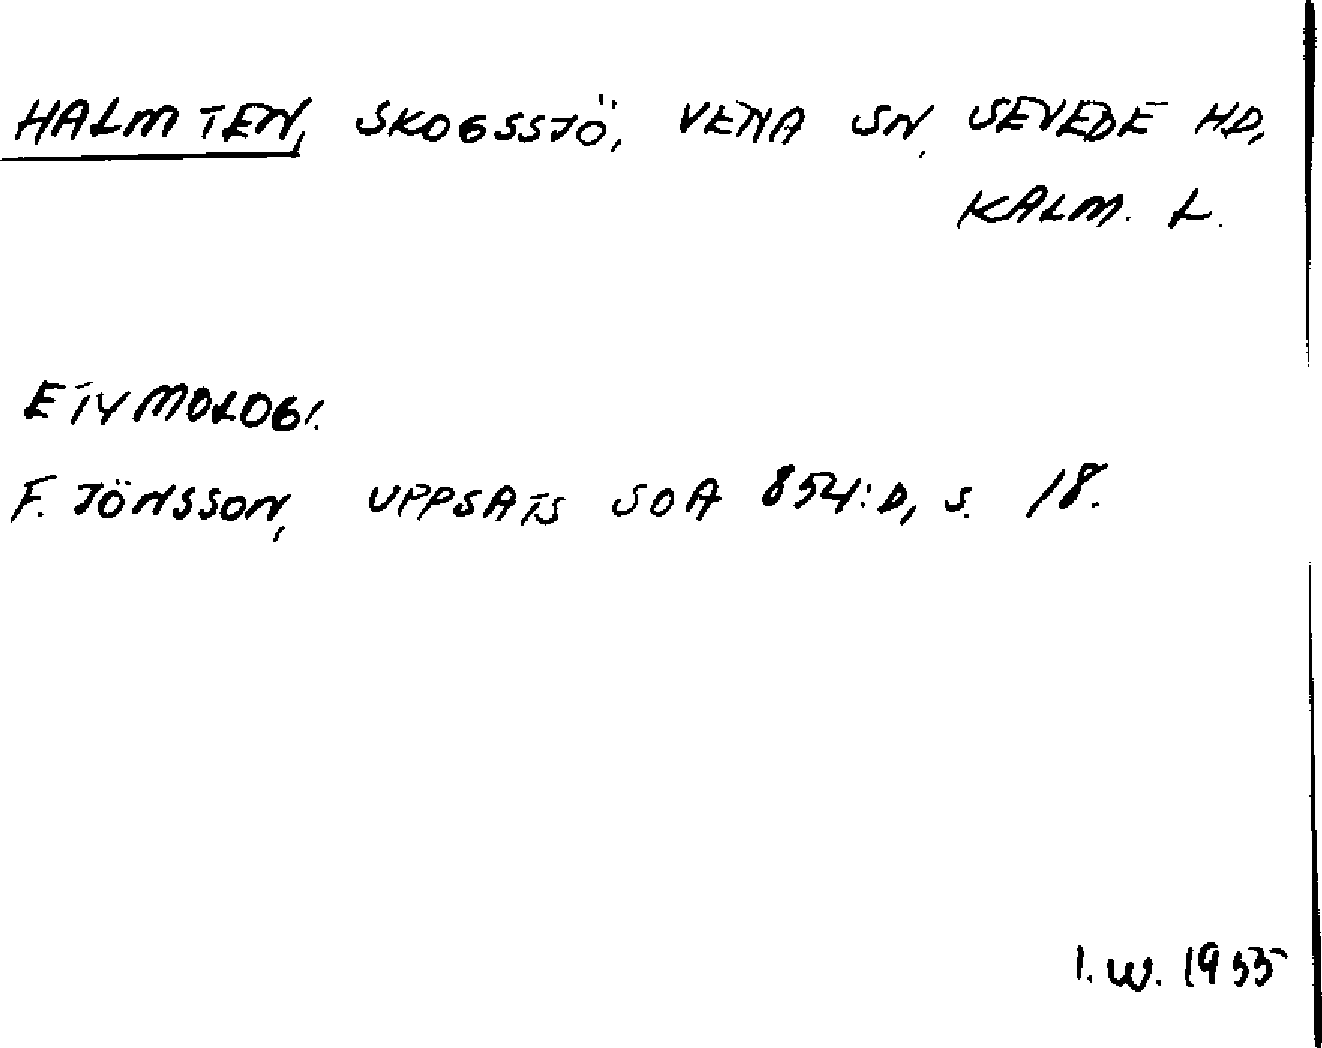 HALMTEN, SKOGSSJÖ, VENA SN, SEVEDE HD,
KALM. L.
ETYMOLOGI.
F. JÖNSSON, UPPSATS SOA 854:D, S. 18.
I. W. 1955